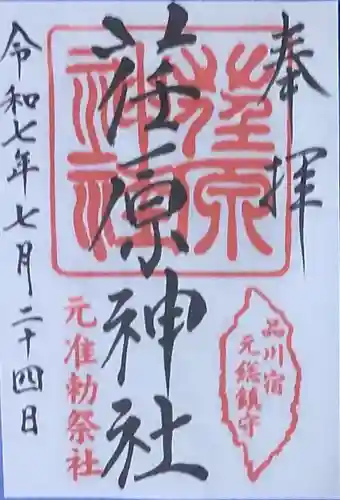 奉拝
荏原神社
荏原
神社
品川宿
元総鎮守
元准勅祭社
令和七年七月二十四日